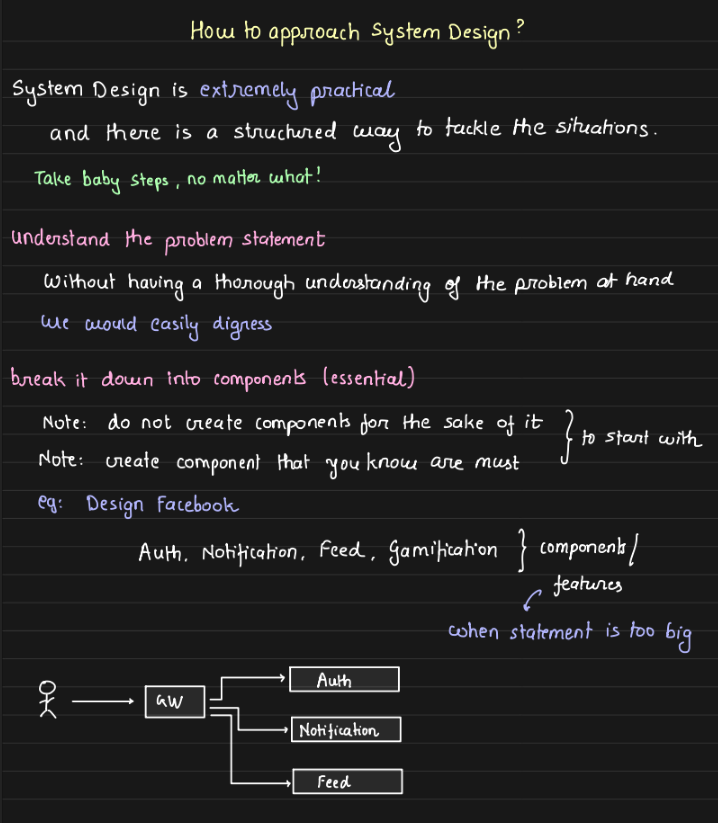 How to approach System Design?
System Design is extremely practical
and there is a structured way to tackle the situations.
Take baby steps, no matter what!
understand the problem statement
Without having a thorough understanding of the problem at hand
we would easily digress
break it down into components (essential)
Note: do not create components for the sake of it
Note: create component that you know are must
to start with
eg: Design Facebook
Auth, Notification, Feed, Gamification
components/
features
when statement is too big
GW
Auth
Notification
Feed